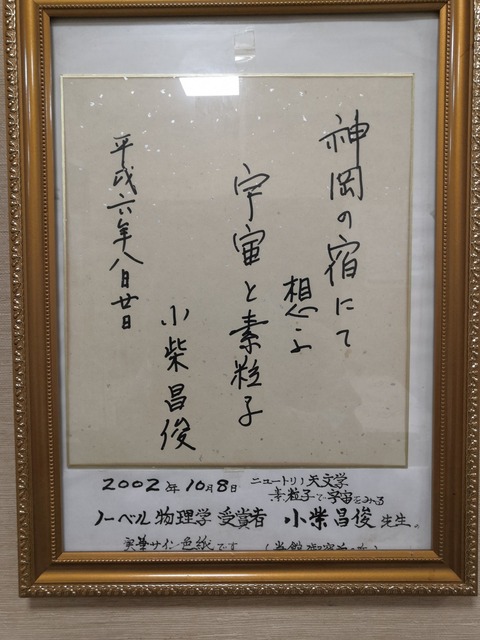 神岡の宿にて
想ふ
宇宙と素粒子
小柴昌俊
平成六年八月廿日
2002年10月8日 ニュートリノ天文学
素粒子で宇宙をみる
ノーベル物理学受賞者 小柴昌俊先生の
実筆サイン色紙です